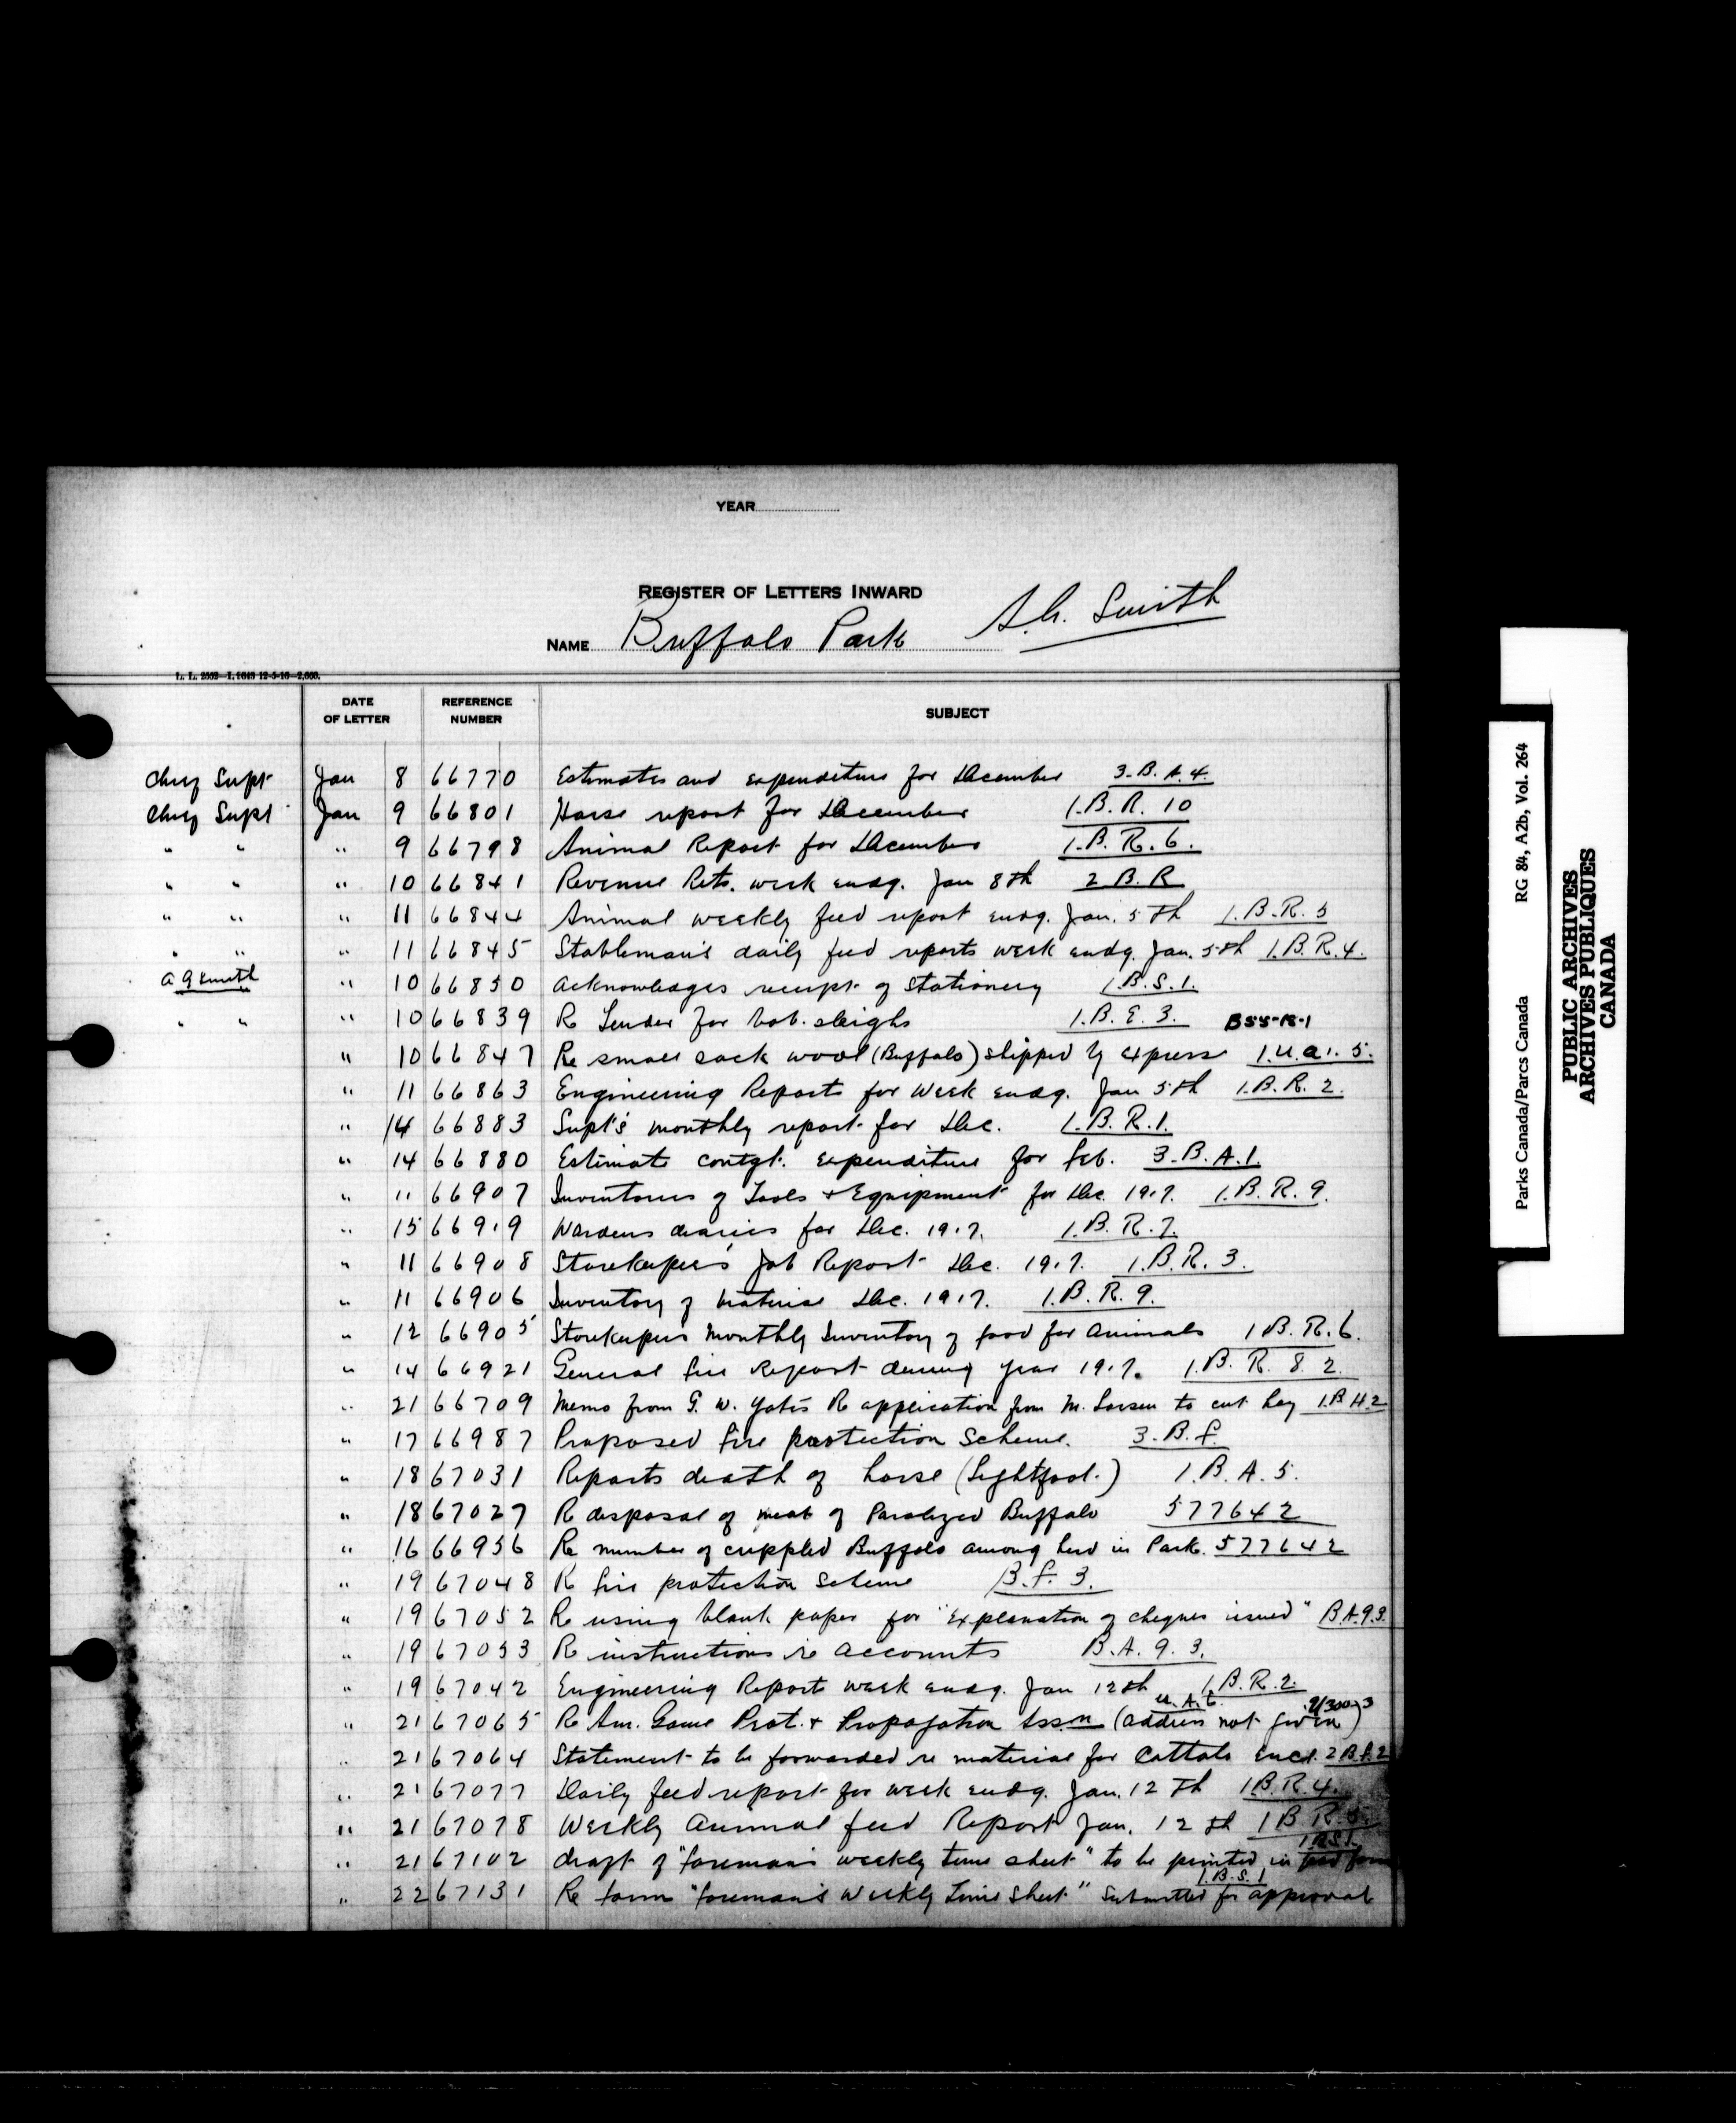 YEAR
REGISTER OF LETTERS INWARD
NAME Buffalo Park A.G. Smith
L. L. 2552—I. 1643 12-5-16—2,000.
DATE OF LETTER REFERENCE NUMBER SUBJECT
Chf Supt Jan 8 66770 Estimates and expenditure for December 3.B.A.4.
Chf Supt Jan 9 66801 Horse report for December 1.B.R. 10
" " " 9 66798 Animal Report for December 1.B.R.6.
" " " 10 66841 Revenue Rets. week endg. Jan 8th 2 B.R
" " " 11 66844 Animal weekly feed report endg. Jan. 5th 1.B.R.5
" " " 11 66845 Stableman's daily feed reports week endg. Jan. 5th 1.B.R.4.
A G Smith " 10 66850 Acknowledges receipt of Stationery 1.B.S.1.
" " " 10 66839 Re Tender for bob. sleighs 1.B.E.3.
" 10 66847 Re small sack wool (Buffalo) shipped by express 1.U.a.1.5.
" 11 66863 Engineering Reports for Week endg. Jan 5th 1.B.R.2.
" 14 66883 Supt's monthly report for Dec. 1.B.R.1.
" 14 66880 Estimate contgt. expenditure for feb. 3.B.A.1.
" 11 66907 Inventories of Tools + Equipment for Dec. 1917. 1.B.R.9.
" 15 66919 Wardens diaries for Dec. 1917. 1.B.R.7.
" 11 66908 Storekeeper's Job Report Dec. 1917. 1.B.R.3.
" 11 66906 Inventory of Material Dec. 1917. 1.B.R.9.
" 12 66905 Storekeepers Monthly Inventory of food for Animals 1B.R.6.
" 14 66921 General fire Report during year 1917. 1.B.R.8.2.
" 21 66709 Memo from G. W. Yates Re application from M. Larsen to cut hay 1.B.H.2
" 17 66987 Proposed fire protection Scheme. 3.B.f.
" 18 67031 Reports death of horse (Lightfoot.) 1.B.A.5.
" 18 67027 Re disposal of meat of Paralized Buffalo 577642
" 16 66956 Re number of crippled Buffalo among herd in Park. 577642
" 19 67048 Re fire protection Scheme B.f.3.
" 19 67052 Re using blank paper for "Explanation of cheques issued" B.A.9.3.
" 19 67053 Re instructions re accounts B.A.9.3.
" 19 67042 Engineering Reports week endg. Jan 12th 1.B.R.2.
" 21 67065 Re Am. Game Prot. + Propagation Assn (address not given)
" 21 67064 Statement to be forwarded re material for Cattalo Encl.
" 21 67077 Daily feed report for week endg. Jan. 12th 1.B.R.4.
" 21 67078 Weekly Animal feed Report Jan. 12th 1 B R.5.
" 21 67102 draft of "foreman's weekly time sheet" to be printed in
1.B.S.1
" 22 67131 Re form "foreman's Weekly Time Sheet" Submitted for approval
RG 84, A2b, Vol. 264
Parks Canada/Parcs Canada
PUBLIC ARCHIVES
ARCHIVES PUBLIQUES
CANADA